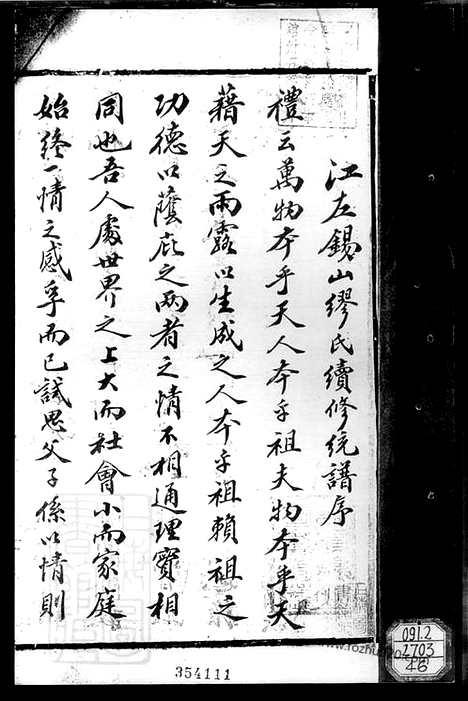 江左錫山繆氏續修統譜序
禮云萬物本乎天人本乎祖夫物本乎天
藉天之雨露以生成之人本乎祖賴祖之
功德以蔭庇之两者之情不相通理實相
同也吾人處世界之上大而社會小而家庭
始終一情之感孚而已試思父子係以情則
354111
091.2
2703